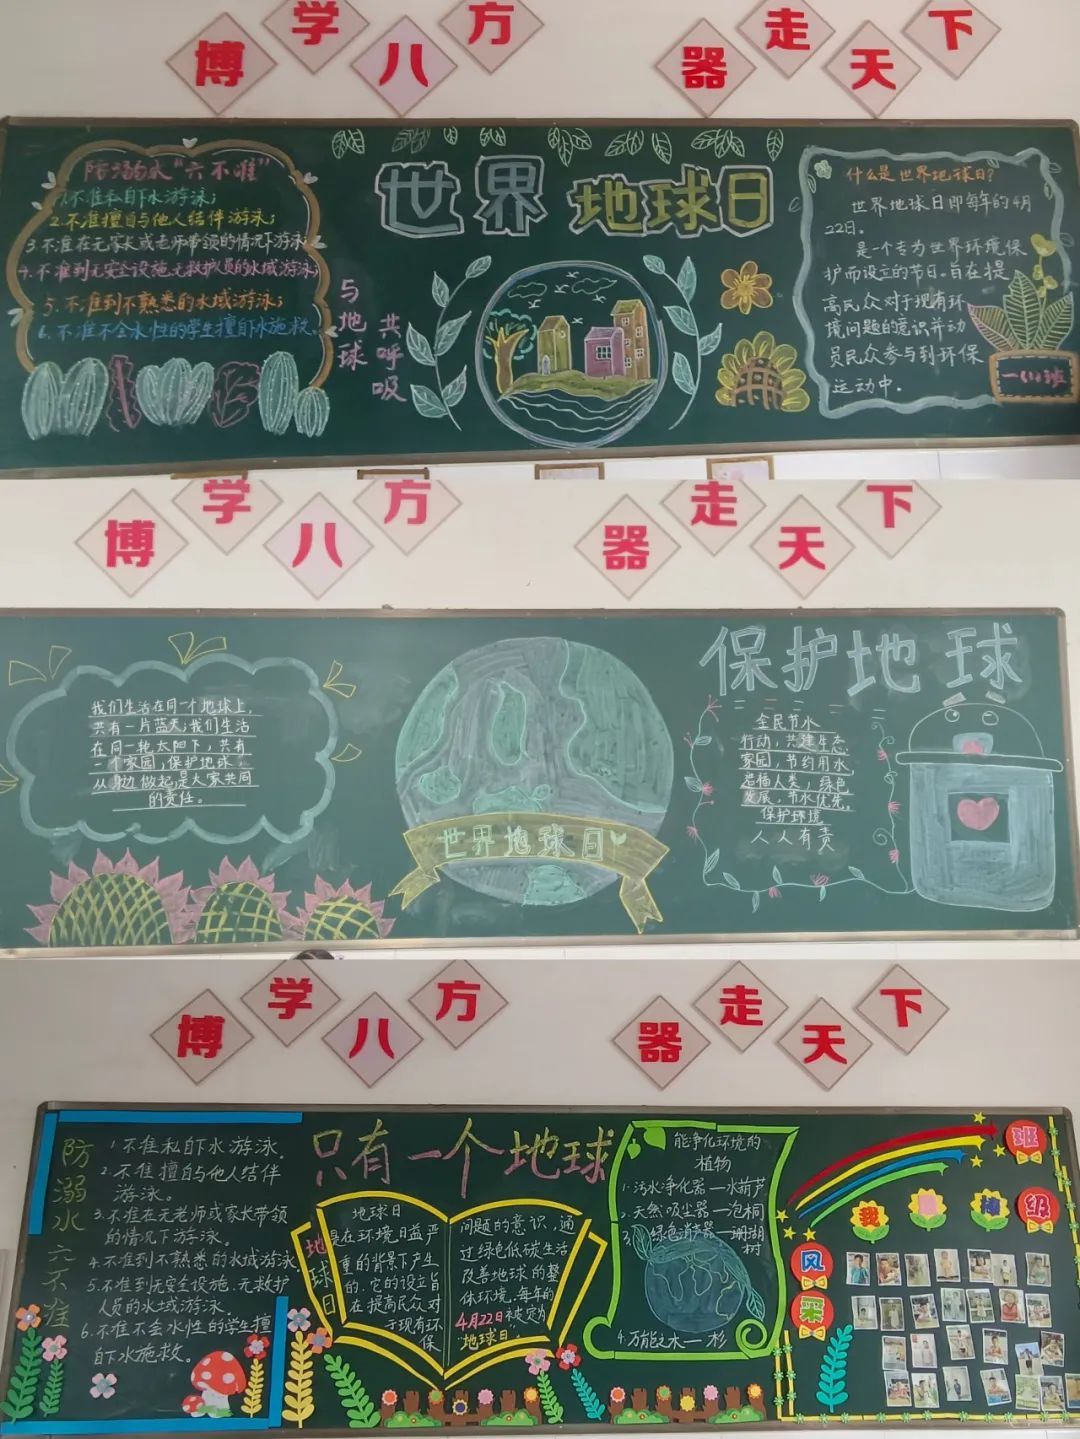 博学八方
器走天下
防溺水"六不准"
1.不准私自下水游泳;
2.不准擅自与他人结伴游泳;
3.不准在无家长或老师带领的情况下游泳
4.不准到无安全设施、无救护人员的水域游泳;
5.不准到不熟悉的水域游泳;
6.不准不会水性的学生擅自下水施救.
与地球
共呼吸
世界地球日
什么是世界地球日?
世界地球日即每年的4月
22日。
是一个专为世界环境保
护而设立的节日。旨在提
高民众对于现有环
境问题的意识并动
员民众参与到环保
运动中。
一(1)班
博学八方
器走天下
我们生活在同一个地球上,
共有一片蓝天;我们生活
在同一轮太阳下,共有
一个家园,保护地球,
从身边做起是大家共同
的责任。
世界地球日
保护地球
全民节水
行动,共建生态
家园,节约用水,
造福人类,绿色
发展,节水优先,
保护环境
人人有责
博学八方
器走天下
防溺水六不准
1.不准私自下水游泳.
2.不准擅自与他人结伴
游泳。
3.不准在无老师或家长带领
的情况下游泳。
4.不准到不熟悉的水域游泳
5.不准到无安全设施、无救护
人员的水域游泳.
6.不准不会水性的学生擅
自下水施救。
只有一个地球
地球日
地球日
是在环境日益严
重的背景下产生
的,它的设立旨
在提高民众对
于现有环保
问题的意识,通
过绿色低碳生活
改善地球的整
体环境.每年的
4月22日被定为
"地球日.
能净化环境的
植物
1.污水净化器—水葫芦
2.天然吸尘器—泡桐
3.绿色消声器—珊瑚
树
4.万能之木—杉
班级
风采
我